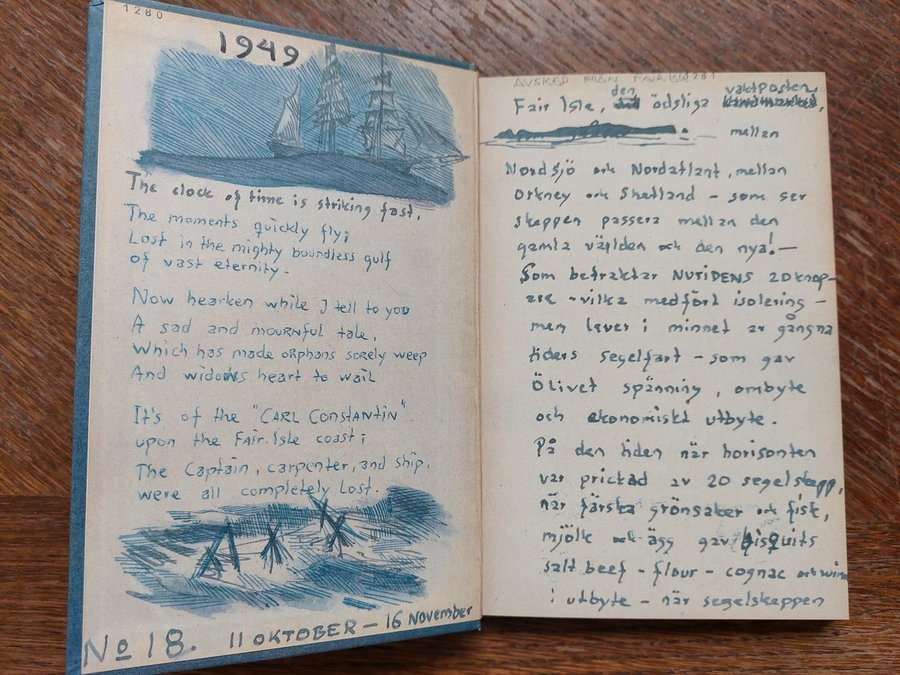 1260
1949
The clock of time is striking fast.
The moments quickly fly;
Lost in the mighty boundless gulf
of vast eternity.
Now hearken while I tell to you
A sad and mournful tale,
Which has made orphans sorely weep
And widows heart to wail
It's of the "CARL CONSTANTIN"
upon the Fair Isle coast;
The Captain, carpenter, and ship,
were all completely lost.
No 18. 11 OKTOBER — 16 November
AVSKED FRÅN FAIR ISLE 1281
Fair Isle, den ödsliga vaktposten,
mellan
Nordsjö och Nordatlant, mellan
Orkney och Shetland - som ser
skeppen passera mellan den
gamla världen och den nya! —
Som betraktar NUTIDENS 20 knop-
are - vilka medfört isolering -
men lever i minnet av gångna
tiders segelfart - som gav
Ölivet spänning, ombyte
och ekonomiskt utbyte.
På den tiden när horisonten
var prickad av 20 segelskepp,
när färska grönsaker och fisk,
mjölk och ägg gav bisquits
salt beef - flour - cognac och wine
i utbyte - när segelskeppen